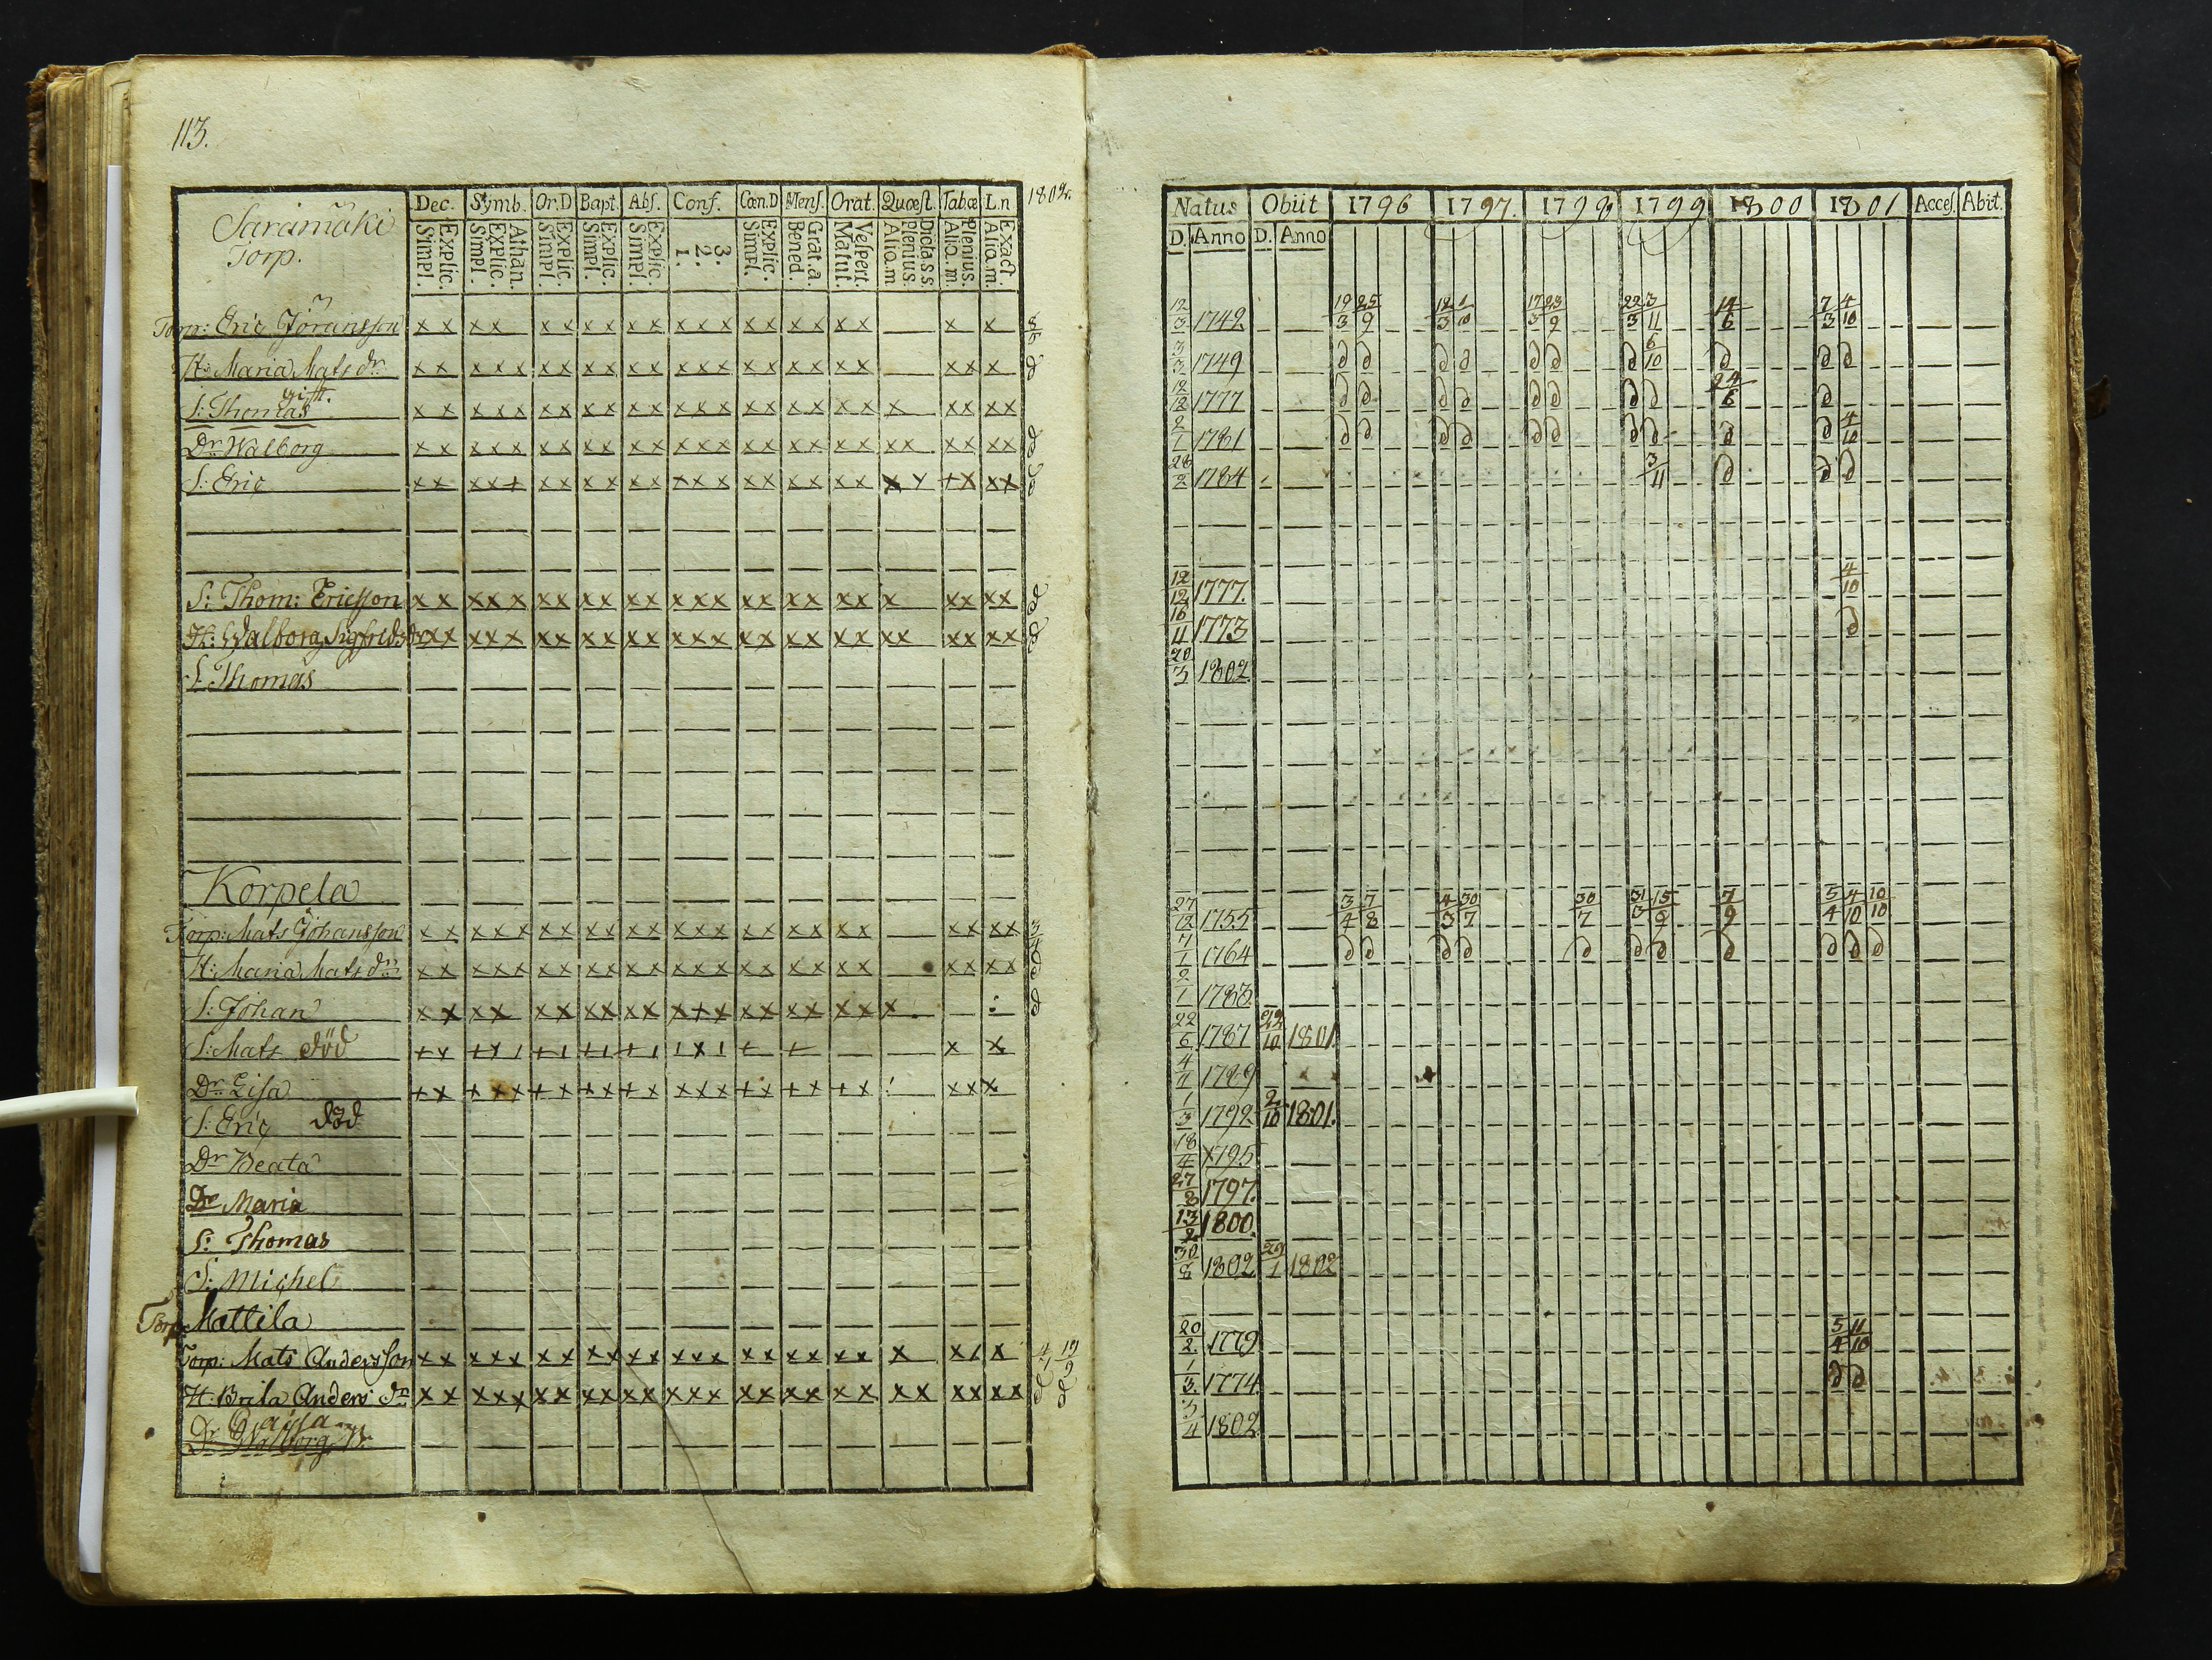 113.
Saramäki
Torp.
Dec. Symb. Or.D Bapt. Abs. Conf. Cœn.D Mens. Orat. Quæst. Tabæ L.n 1802.
Explic. Simpl. Athan. Explic. Simpl. Explic. Simpl. Explic. Simpl. Explic. Simpl. 3. 2. 1. Explic. Simpl. Grat.a. Bened. Vespert. Matut. Dicta s.s. Plenius. Alio.m Plenius. Alio.m Exact Alio.m.
Torp: Eric Jöransson x x x x x x x x x x x x x x x x x x x x x
H: Maria Mats dr x x x x x x x x x x x x x x x x x x x x x x x
gift.
S: Thomas x x x x x x x x x x x x x x x x x x x x x x x x x
Dr Walborg x x x x x x x x x x x x x x x x x x x x x x x x x x
S: Eric x x x x x x x x x x x x x x x x x x x x x x x x x x
S: Thom: Ericsson x x x x x x x x x x x x x x x x x x x x x x x x x
H: Walborg Sigfrids dr x x x x x x x x x x x x x x x x x x x x x x x x x x
S: Thomas
Korpela
Torp: Mats Johansson x x x x x x x x x x x x x x x x x x x x x x x x
H: Maria Mats dr x x x x x x x x x x x x x x x x x x x x x x x x
S: Johan x x x x x x x x x x x x x x x x x x x x x
S: Mats död
Dr Lisa
S: Eric död
Dr Beata
Dr Maria
S: Thomas
S: Michel
Torp Mattila
Torp: Mats Andersson x x x x x x x x x x x x x x x x x x x x x x x x
H: Brita Anders dr x x x x x x x x x x x x x x x x x x x x x x x x x x
Dr Walborg
Natus Obiit 1796 1797. 1798 1799 1800 1801 Acces. Abit.
D. Anno D. Anno
12/3 1749 19/3 25/9 12/3 1/10 17/3 23/9 22/3 3/11 14/6 7/3 4/10
3/3 1749 d d d d d d d 6/10 d d d
12/12 1777 d d d d d d d d 24/6 d
2/1 1781 d d d d d d d d d d 4/10
26/2 1784 3/11 d d d
12/12 1777. 4/10
16/11 1773 d
20/3 1802
27/12 1755 3/4 7/8 4/3 30/7 30/7 31/3 15/9 7/9 5/4 4/10 10/10
7/1 1764 d d d d d d d d d d d
2/1 1783.
22/6 1787 1801.
4/11 1789
1/3 1792 2/10 1801.
18/4 1795
27/8 1797.
13/2 1800.
30/8 1802 1802
20/2 1779 5/4 11/10
1/3 1774 d d
3/4 1802